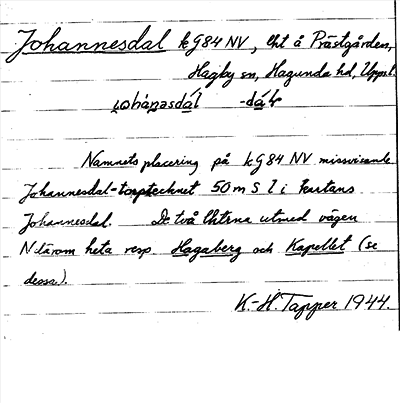 Johannesdal k G 84 NV, lht å Prästgården,
Hagby sn, Hagunda hd, Uppsl.
-dál
Namnets placering på k G 84 NV missvisande.
Johannesdal = torptecknet 50 m S l i kartans
Johannesdal. De två lhterna utmed vägen
N därom heta resp. Hagaberg och Kapellet (se
dessa).
K.-H. Tapper 1944.